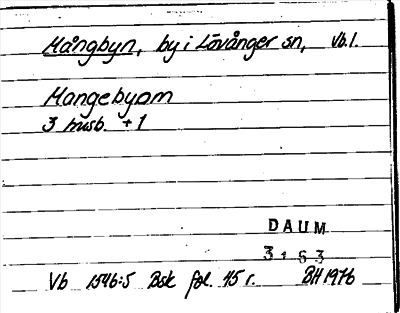 Mångbyn, by i Lövånger sn, Vb.l.
Mangebyom
3 husb. + 1
DAUM
3163
Vb 1546:5 Bsk fol. 45 r. BH 1976